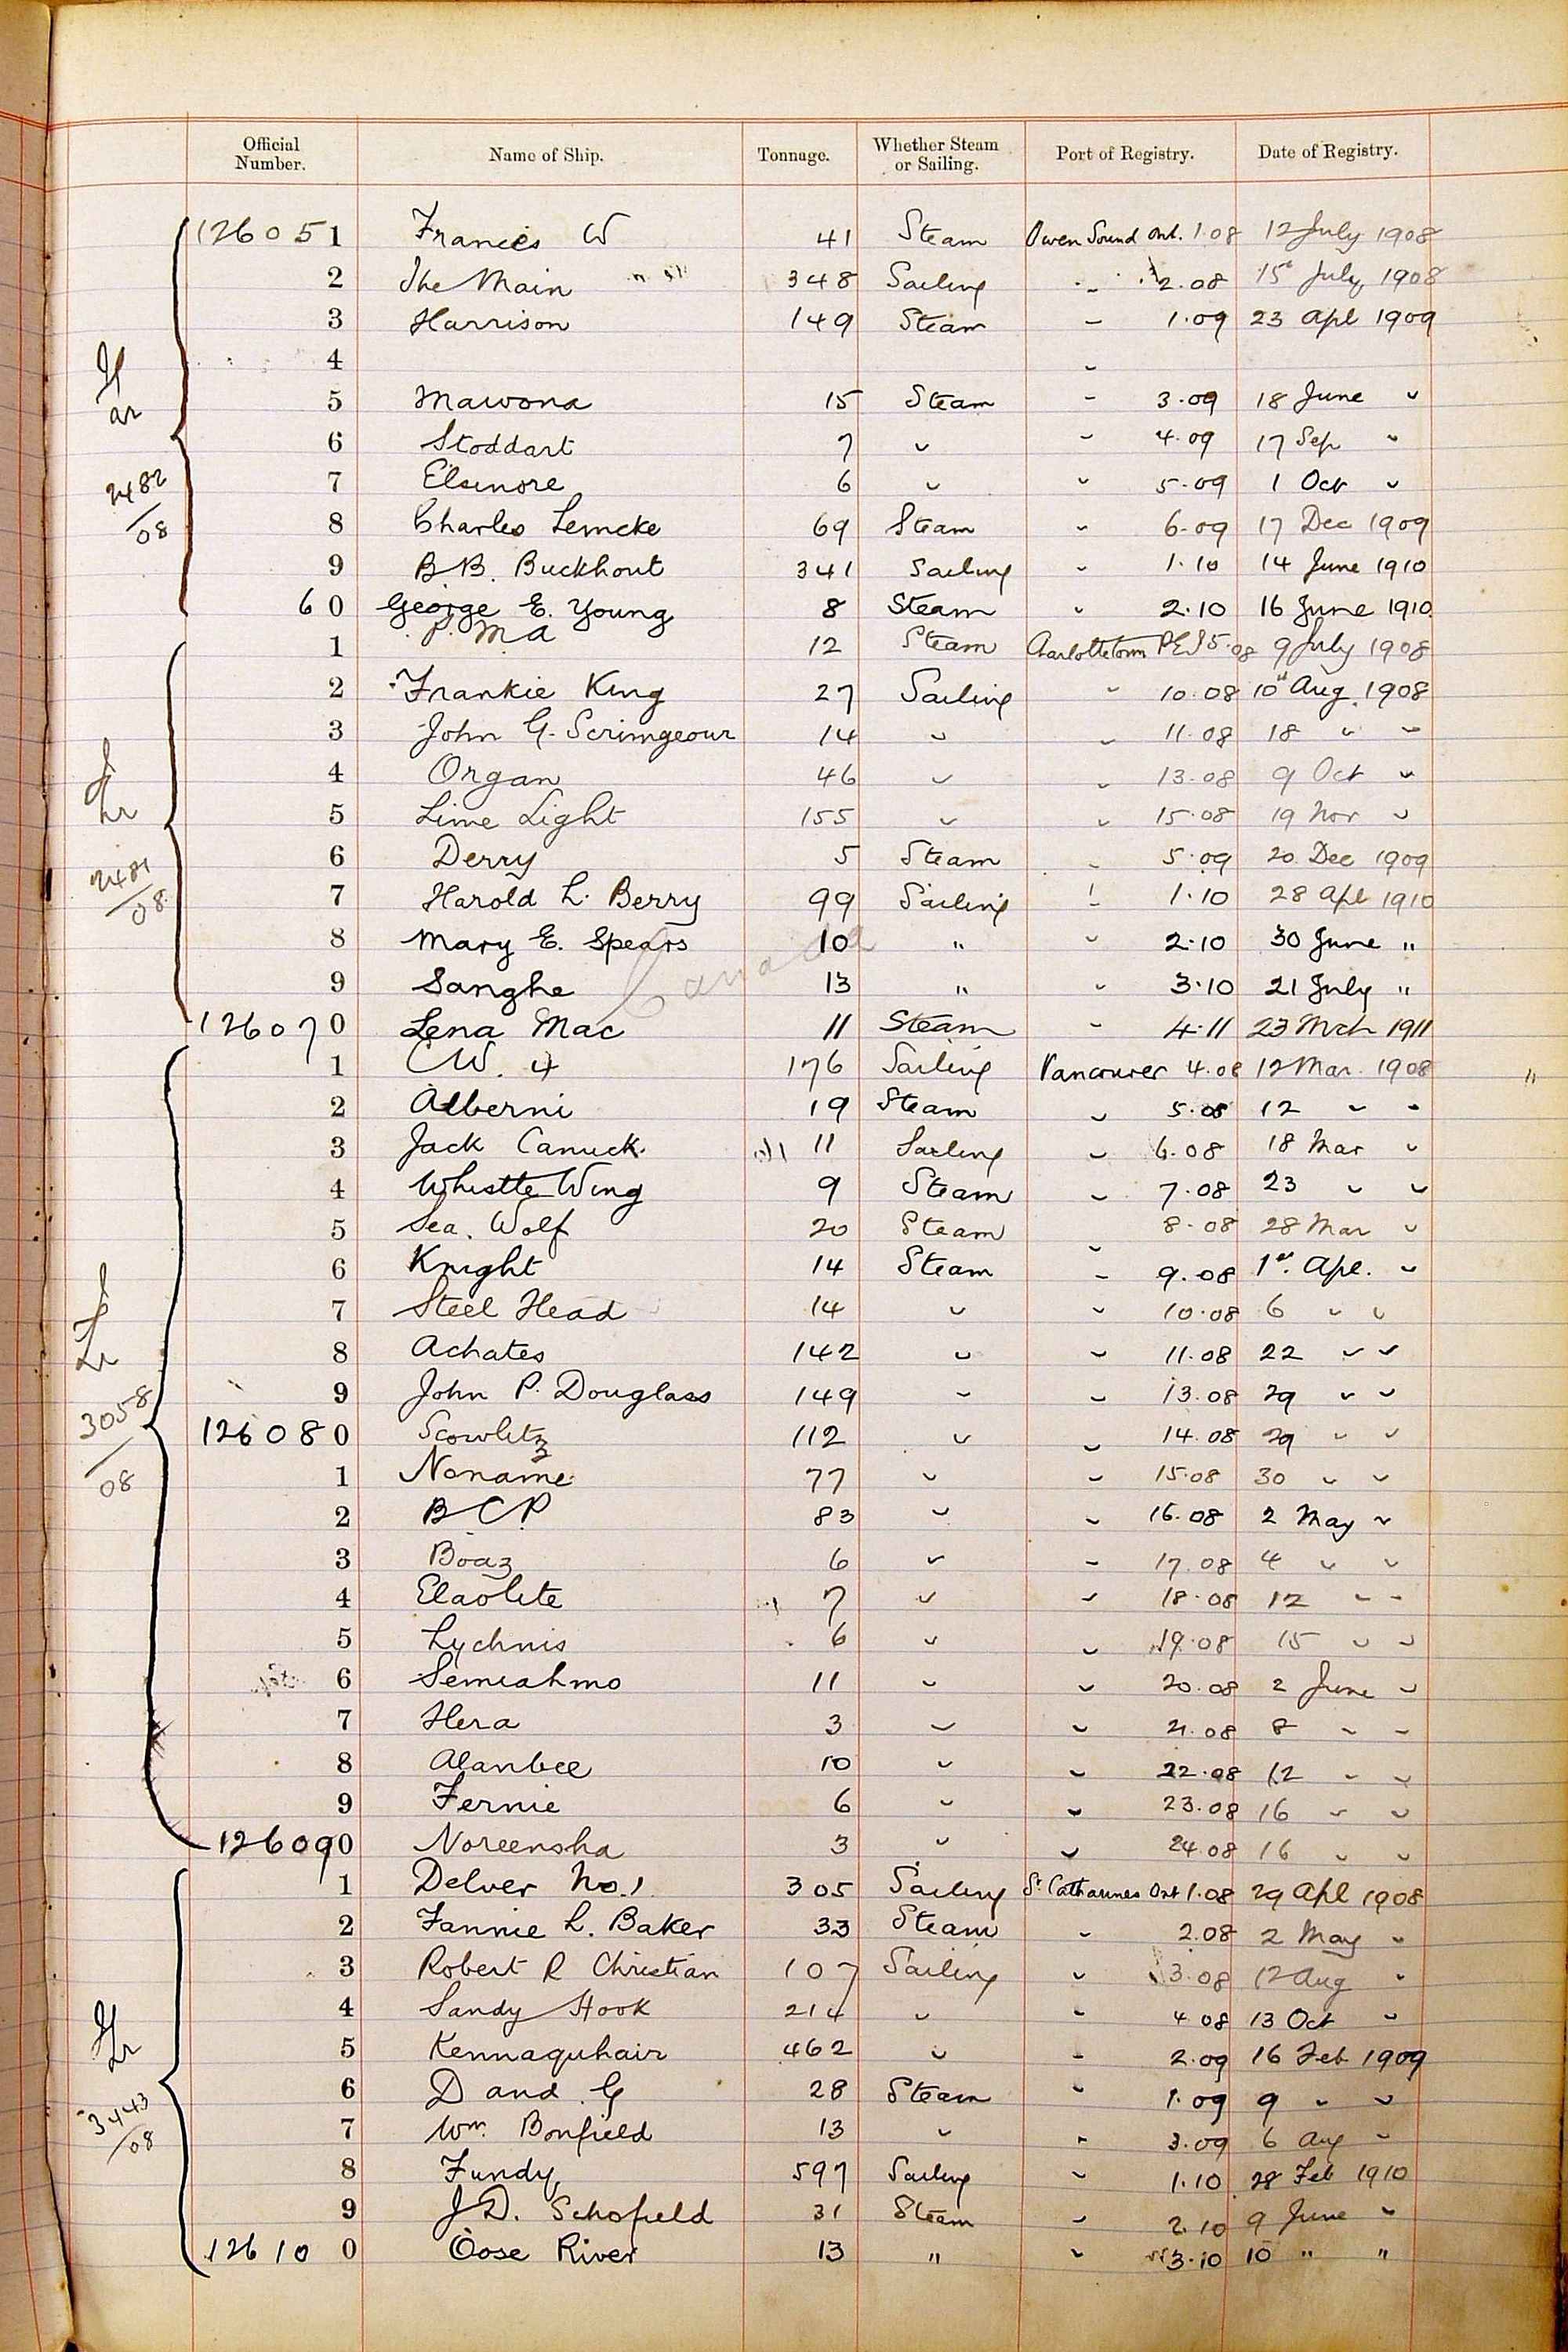 Official Number. Name of Ship. Tonnage. Whether Steam or Sailing. Port of Registry. Date of Registry.
126051 Francis W 41 Steam Owen Sound Ont. 1.08 12 July 1908
2 The Main 348 Sailing " 2.08 15 July 1908
3 Harrison 149 Steam " 1.09 23 Apl 1909
4 "
5 Mawona 15 Steam " 3.09 18 June "
6 Stoddart 7 " " 4.09 17 Sep "
7 Elsinore 6 " " 5.09 1 Oct "
8 Charles Lemcke 69 Steam " 6.09 17 Dec 1909
9 B.B. Buckhout 341 Sailing " 1.10 14 June 1910
60 George E. Young 8 Steam " 2.10 16 June 1910
2482/08
1 P. M A 12 Steam Charlottetown PEI 5.08 9 July 1908
2 Frankie King 27 Sailing " 10.08 10th Aug. 1908
3 John G. Scrimgeour 14 " " 11.08 18 " "
4 Organ 46 " " 13.08 9 Oct "
5 Lime Light 155 " " 15.08 19 Nov "
6 Derry 5 Steam " 5.09 20 Dec 1909
7 Harold L. Berry 99 Sailing " 1.10 28 Apl 1910
8 Mary E. Spears 10 " " 2.10 30 June "
9 Sanghe 13 " " 3.10 21 July "
126070 Lena Mac 11 Steam " 4.11 23 Mch 1911
Canada
2481/08
1 C W. 4 176 Sailing Vancouver 4.08 12 Mar. 1908
2 Alberni 19 Steam " 5.08 12 " "
3 Jack Canuck. 11 Sailing " 6.08 18 Mar "
4 Whistle Wing 9 Steam " 7.08 23 " "
5 Sea Wolf 20 Steam " 8.08 28 Mar "
6 Knight 14 Steam " 9.08 1st. Apl. "
7 Steel Head 14 " " 10.08 6 " "
8 Achates 142 " " 11.08 22 " "
9 John P. Douglass 149 " " 13.08 29 " "
126080 Scowlitz 112 " " 14.08 29 " "
1 Noname 77 " " 15.08 30 " "
2 B C P 83 " " 16.08 2 May "
3 Boaz 6 " " 17.08 4 " "
4 Elaolite 7 " " 18.08 12 " "
5 Lychnis 6 " " 19.08 15 " "
6 Semiahmo 11 " " 20.08 2 June "
7 Hera 3 " " 21.08 8 " "
8 Alanbee 10 " " 22.08 12 " "
9 Fernie 6 " " 23.08 16 " "
126090 Noreensha 3 " " 24.08 16 " "
3058/08
1 Delver No. 1 305 Sailing St. Catharines Ont 1.08 29 Apl 1908
2 Fannie L. Baker 33 Steam " 2.08 2 May "
3 Robert R Christian 107 Sailing " 3.08 12 Aug "
4 Sandy Hook 214 " " 4 08 13 Oct "
5 Kennaquhair 462 " " 2.09 16 Feb 1909
6 D and G 28 Steam " 1.09 9 " "
7 Wm. Bonfield 13 " " 3.09 6 Aug "
8 Fundy 597 Sailing " 1.10 28 Feb 1910
9 J. D. Schofield 31 Steam " 2.10 9 June "
126100 Oose River 13 " " 3.10 10 " "
3443/08